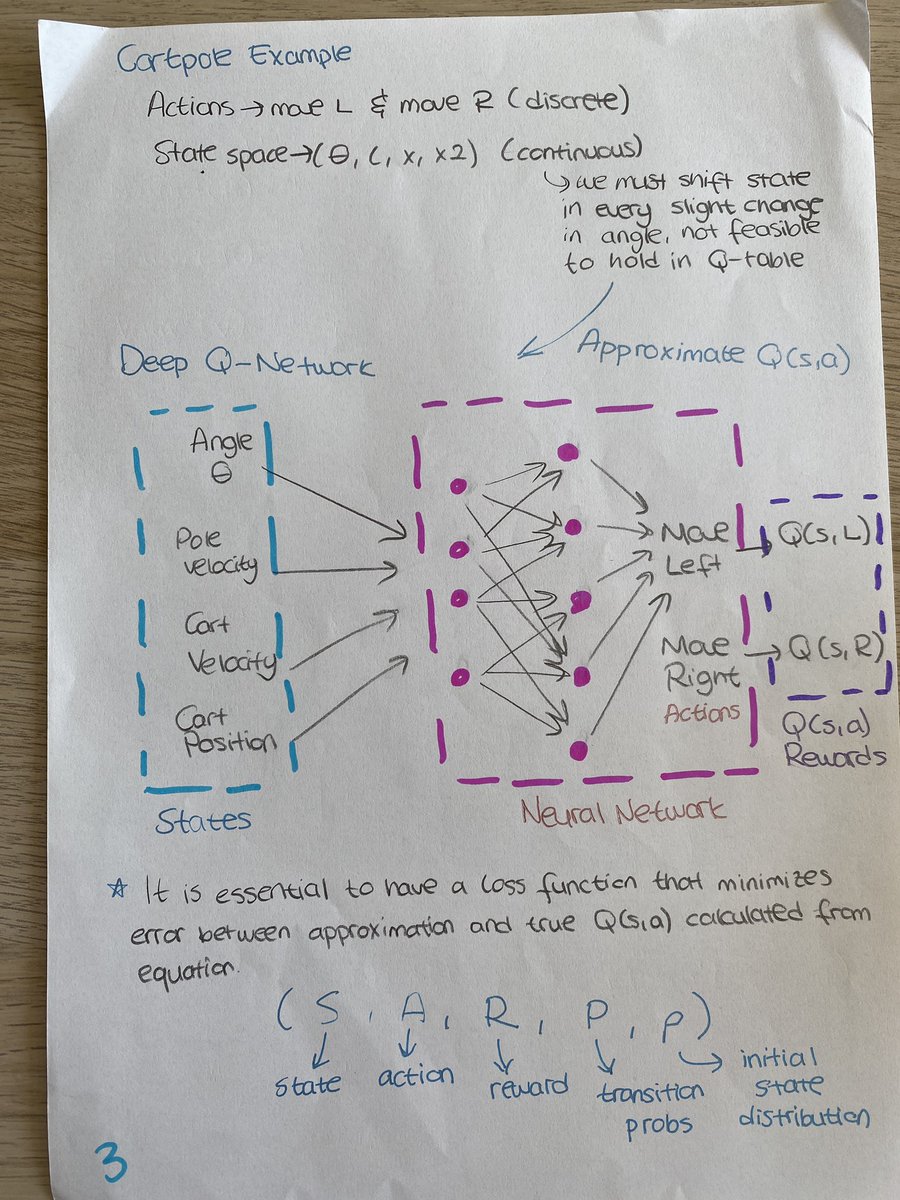 Cartpole Example
Actions → move L & move R (discrete)
State space → (θ, (, x, x2) (continuous)
↳ we must shift state
in every slight change
in angle, not feasible
to hold in Q-table
Approximate Q(s,a)
Deep Q-Network
Angle
θ
Pole
velocity
Cart
Velocity
Cart
Position
States
Move
Left
Move
Right
Actions
Neural Network
Q(s,L)
Q(s,R)
Q(s,a)
Rewards
☆ It is essential to have a loss function that minimizes
error between approximation and true Q(s,a) calculated from
equation.
(S, A, R, P, ρ)
state
action
reward
transition
probs
initial
state
distribution
3